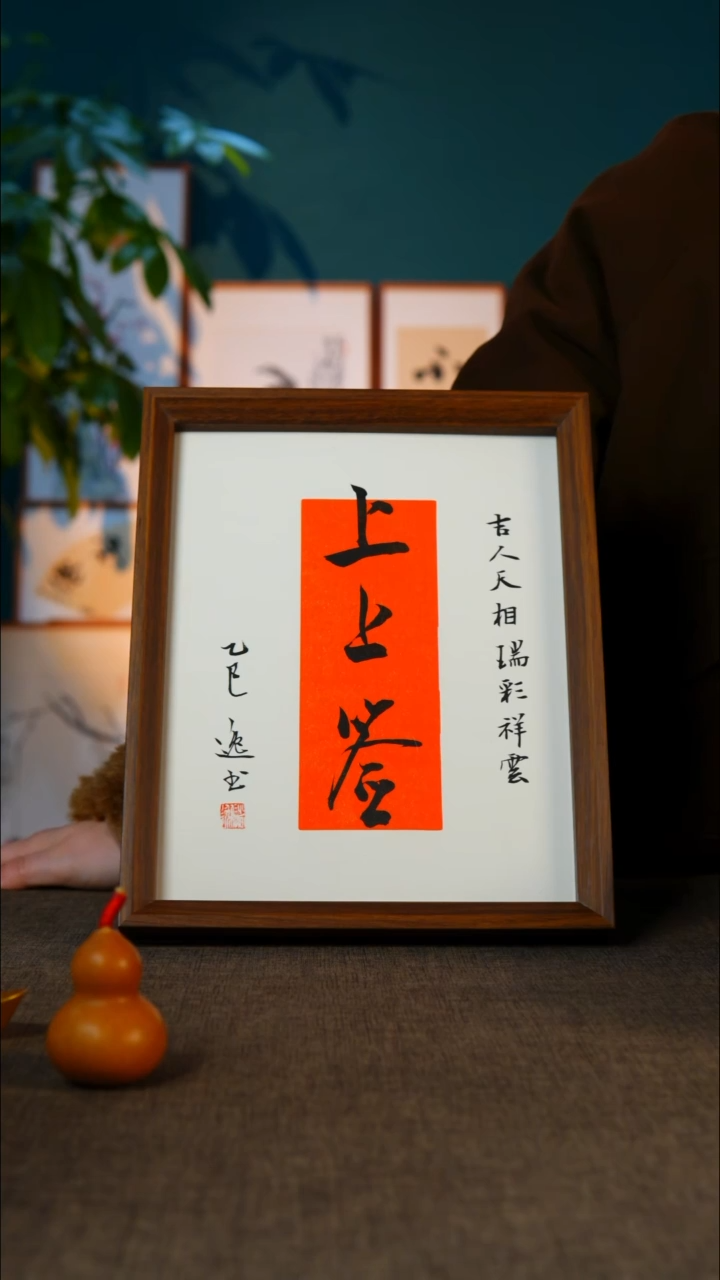 吉人天相瑞彩祥雲
上上签
乙巳 逸书